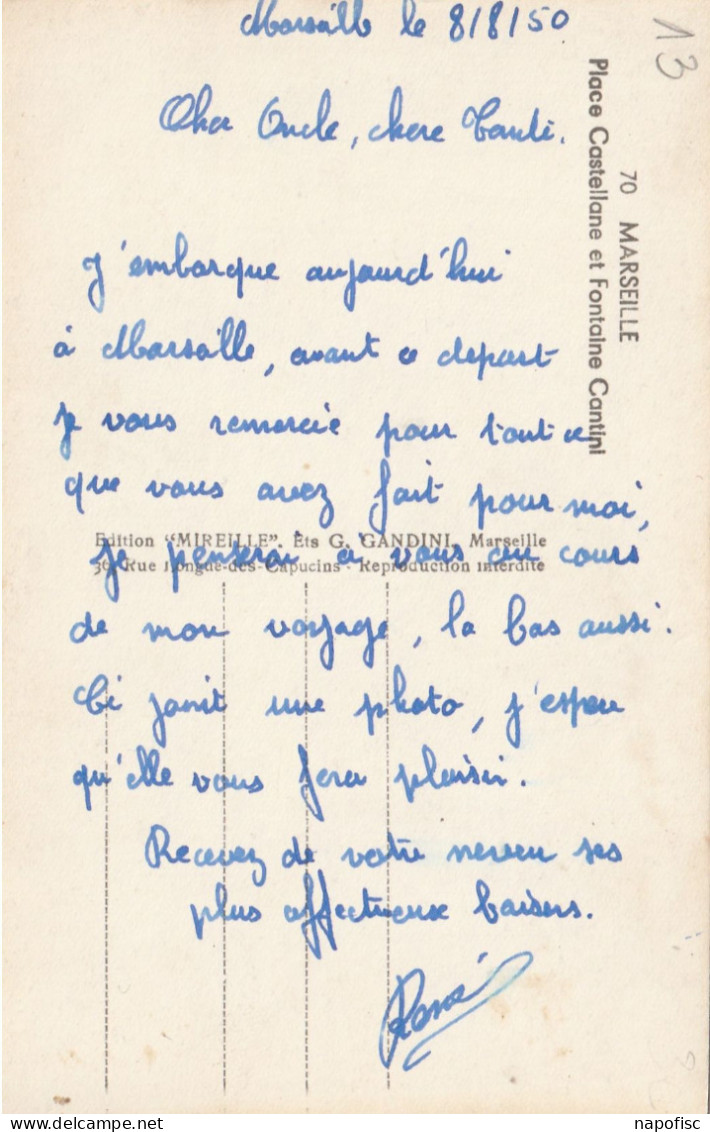 Marseille le 8/8/50
13
Cher Oncle, chere Tante.
70 MARSEILLE
Place Castellane et Fontaine Cantini
J'embarque aujourd'hui
à Marseille, avant ce depart
je vous remercie pour tout ce
que vous avez fait pour moi,
Edition "MIREILLE". Ets G. GANDINI, Marseille
je penserai à vous au cours
36, Rue Longue-des-Capucins - Reproduction interdite
de mon voyage, la bas aussi.
Ci joint une photo, j'espere
qu'elle vous fera plaisir.
Recevez de votre neveu ses
plus affectueux baisers.
René
napofisc